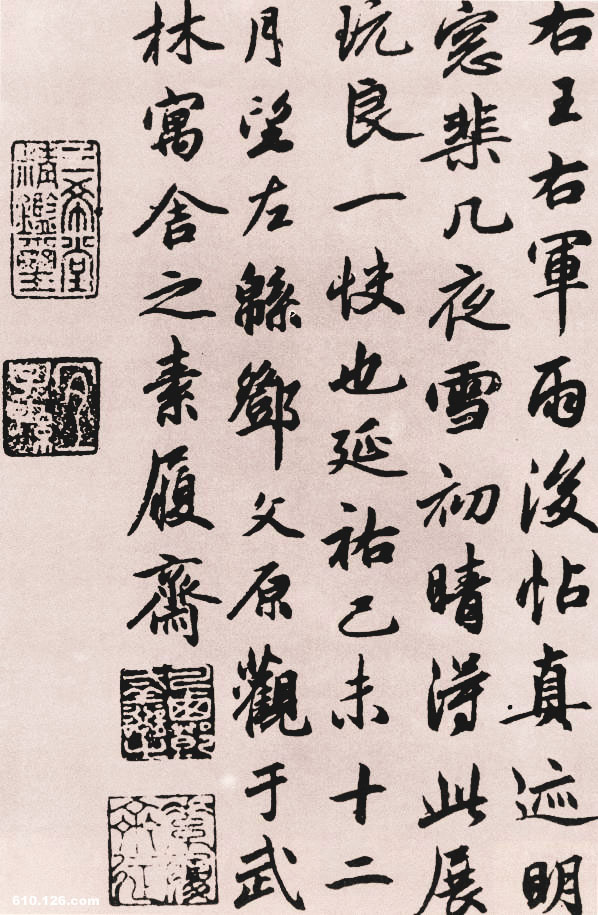 右王右軍雨後帖真迹明
窓棐几夜雪初晴得此展
玩良一快也延祐己未十二
月望左緜鄧文原觀于武
林寓舍之素履齋
三希堂
精鑑璽
610.126.com